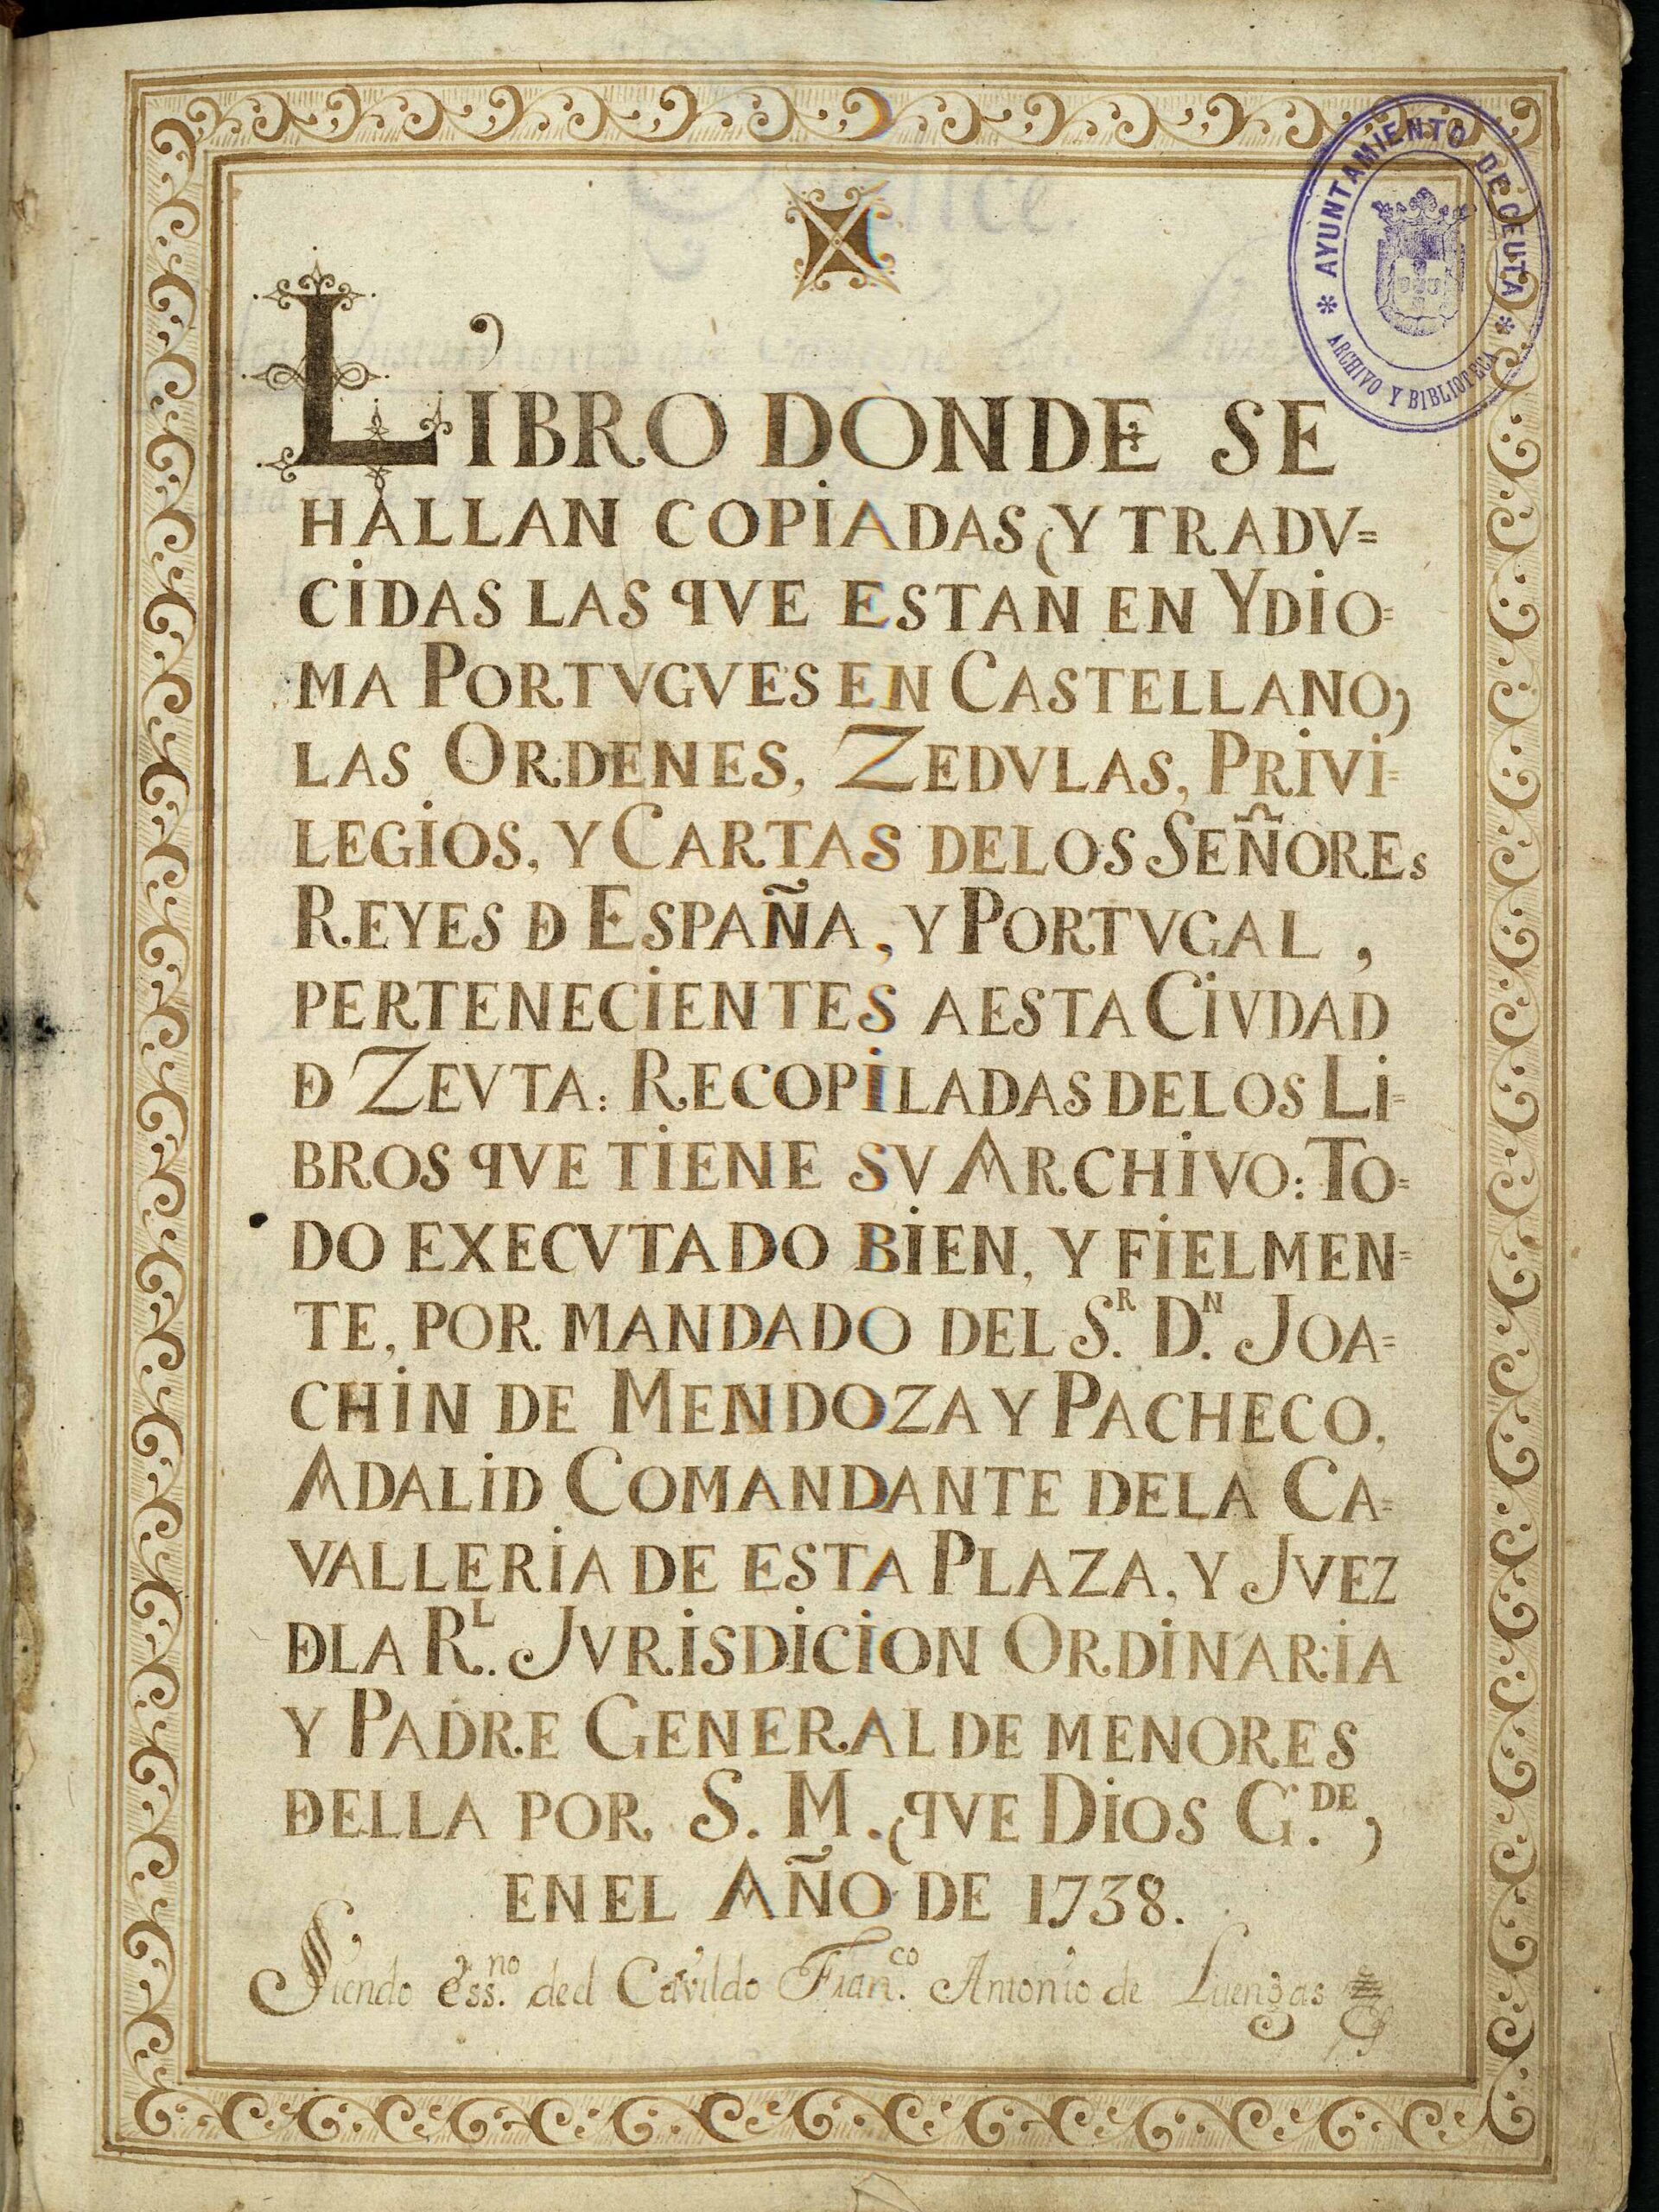 LIBRO DONDE SE
HALLAN COPIADAS (Y TRADV=
CIDAS LAS QVE ESTAN EN YDIO=
MA PORTVGVES EN CASTELLANO)
LAS ORDENES, ZEDVLAS, PRIVI=
LEGIOS, Y CARTAS DELOS SEÑORES
REYES Đ ESPAÑA, Y PORTVGAL,
PERTENECIENTES AESTA CIVDAD
Đ ZEVTA: RECOPILADAS DELOS LI=
BROS QVE TIENE SV ARCHIVO: TO=
DO EXECVTADO BIEN, Y FIELMEN=
TE, POR MANDADO DEL S.R D.N JOA=
CHIN DE MENDOZA Y PACHECO,
ADALID COMANDANTE DELA CA=
VALLERIA DE ESTA PLAZA, Y JVEZ
ĐLA R.L JVRISDICION ORDINARIA
Y PADRE GENERAL DE MENORES
ĐELLA POR S. M. (QVE DIOS G.DE)
EN EL AÑO DE 1738.
Siendo ess.no del Cavildo Fran.co Antonio de Luengas
AYUNTAMIENTO DE CEUTA
ARCHIVO Y BIBLIOTECA